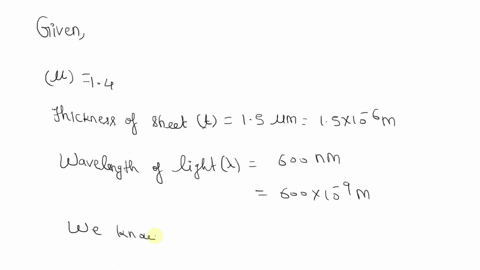 Given,
(μ) = 1.4
Thickness of sheet (t) = 1.5 μm = 1.5×10⁻⁶ m
Wavelength of light (λ) = 600 nm
= 600×10⁻⁹ m
We know